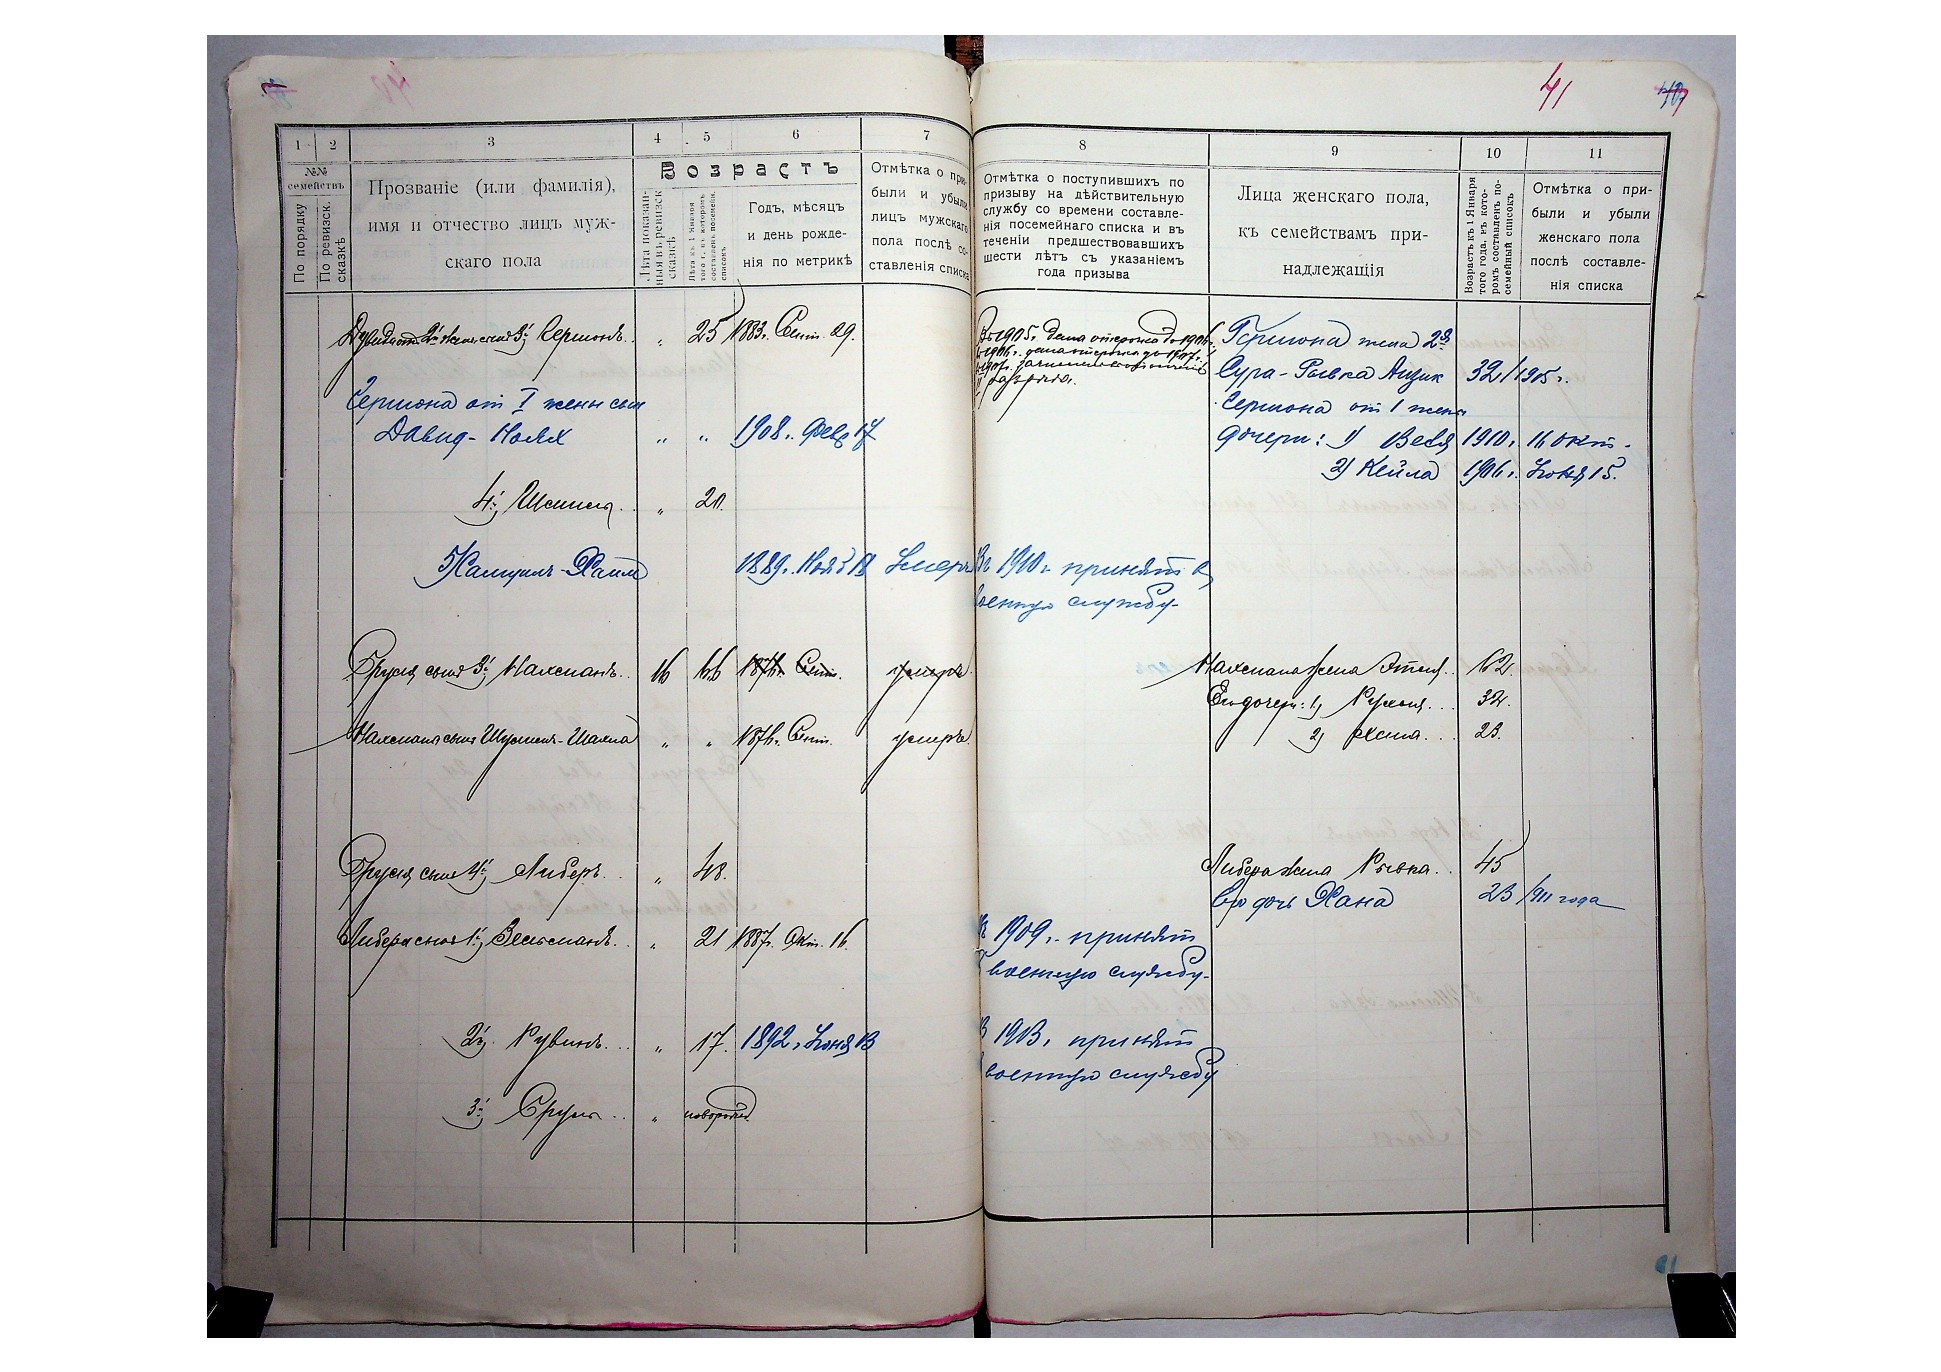 41
1 2 3 4 5 6 7 8 9 10 11
№№ семействъ
По порядку
По ревизск. сказкѣ
Прозваніе (или фамилія),
имя и отчество лицъ муж-
скаго пола
Возрастъ
Лѣта показан-
ныя въ ревизск.
сказкѣ
Лѣта къ 1 Января
того г. въ которомъ
составленъ посемейн.
списокъ
Годъ, мѣсяцъ
и день рожде-
нія по метрикѣ
Отмѣтка о при-
были и убыли
лицъ мужскаго
пола послѣ со-
ставленія списка
Отмѣтка о поступившихъ по
призыву на дѣйствительную
службу со времени составле-
нія посемейнаго списка и въ
теченіи предшествовавшихъ
шести лѣтъ съ указаніемъ
года призыва
Лица женскаго пола,
къ семействамъ при-
надлежащія
Возрастъ къ 1 Января
того года, въ кото-
ромъ составленъ по-
семейный списокъ
Отмѣтка о при-
были и убыли
женскаго пола
послѣ составле-
нія списка
3) Гершонъ . . „ 25 1883 г. Сент. 29.
Въ 1905 г. дана отсрочка до 1906 г.
въ 1906 г. дана отсрочка до 1907 г.
въ 1907 г. зачисленъ въ ополченіе
II разряда.
Гершона жена 2я
Сура-Рывка Айзик 32/1905 г.
Гершона от I жены сын
Давид-Ноях „ „ 1908 г. Февр 17
Гершона от 1 жены
дочери: 1) Вейля 1910 г. 16 окт.
2) Кейла 1906 г. Іюня 15.
4й) . . „ 20.
5) -Хаим 1889 г. Нояб 18 Умеръ
Въ 1910 г. принят в
военную службу.
Сруля сынъ 3й) Нахманъ . . 16 66 1874 г. Сент. умеръ.
Нахмана жена Этля . . 62.
Его дочери: 1) Рухля . . . 32.
Нахмана сынъ Шмуель- „ „ 1874 г. Сент. умеръ.
2) Хана . . . 23.
Сруля сынъ 4й) Либеръ . . „ 48.
Либера жена Рывка . . 45
Его дочь Хана 23/1911 года
Либера сынъ 1й) Зельманъ . . „ 21 1887 г. Окт. 16.
Въ 1909 г. принят
в военную службу.
2й) Рувинъ . . . „ 17. 1892 г. Іюня 13
В 1913 г. принят
в военную службу
3й) Сруль . . „ новорожд.